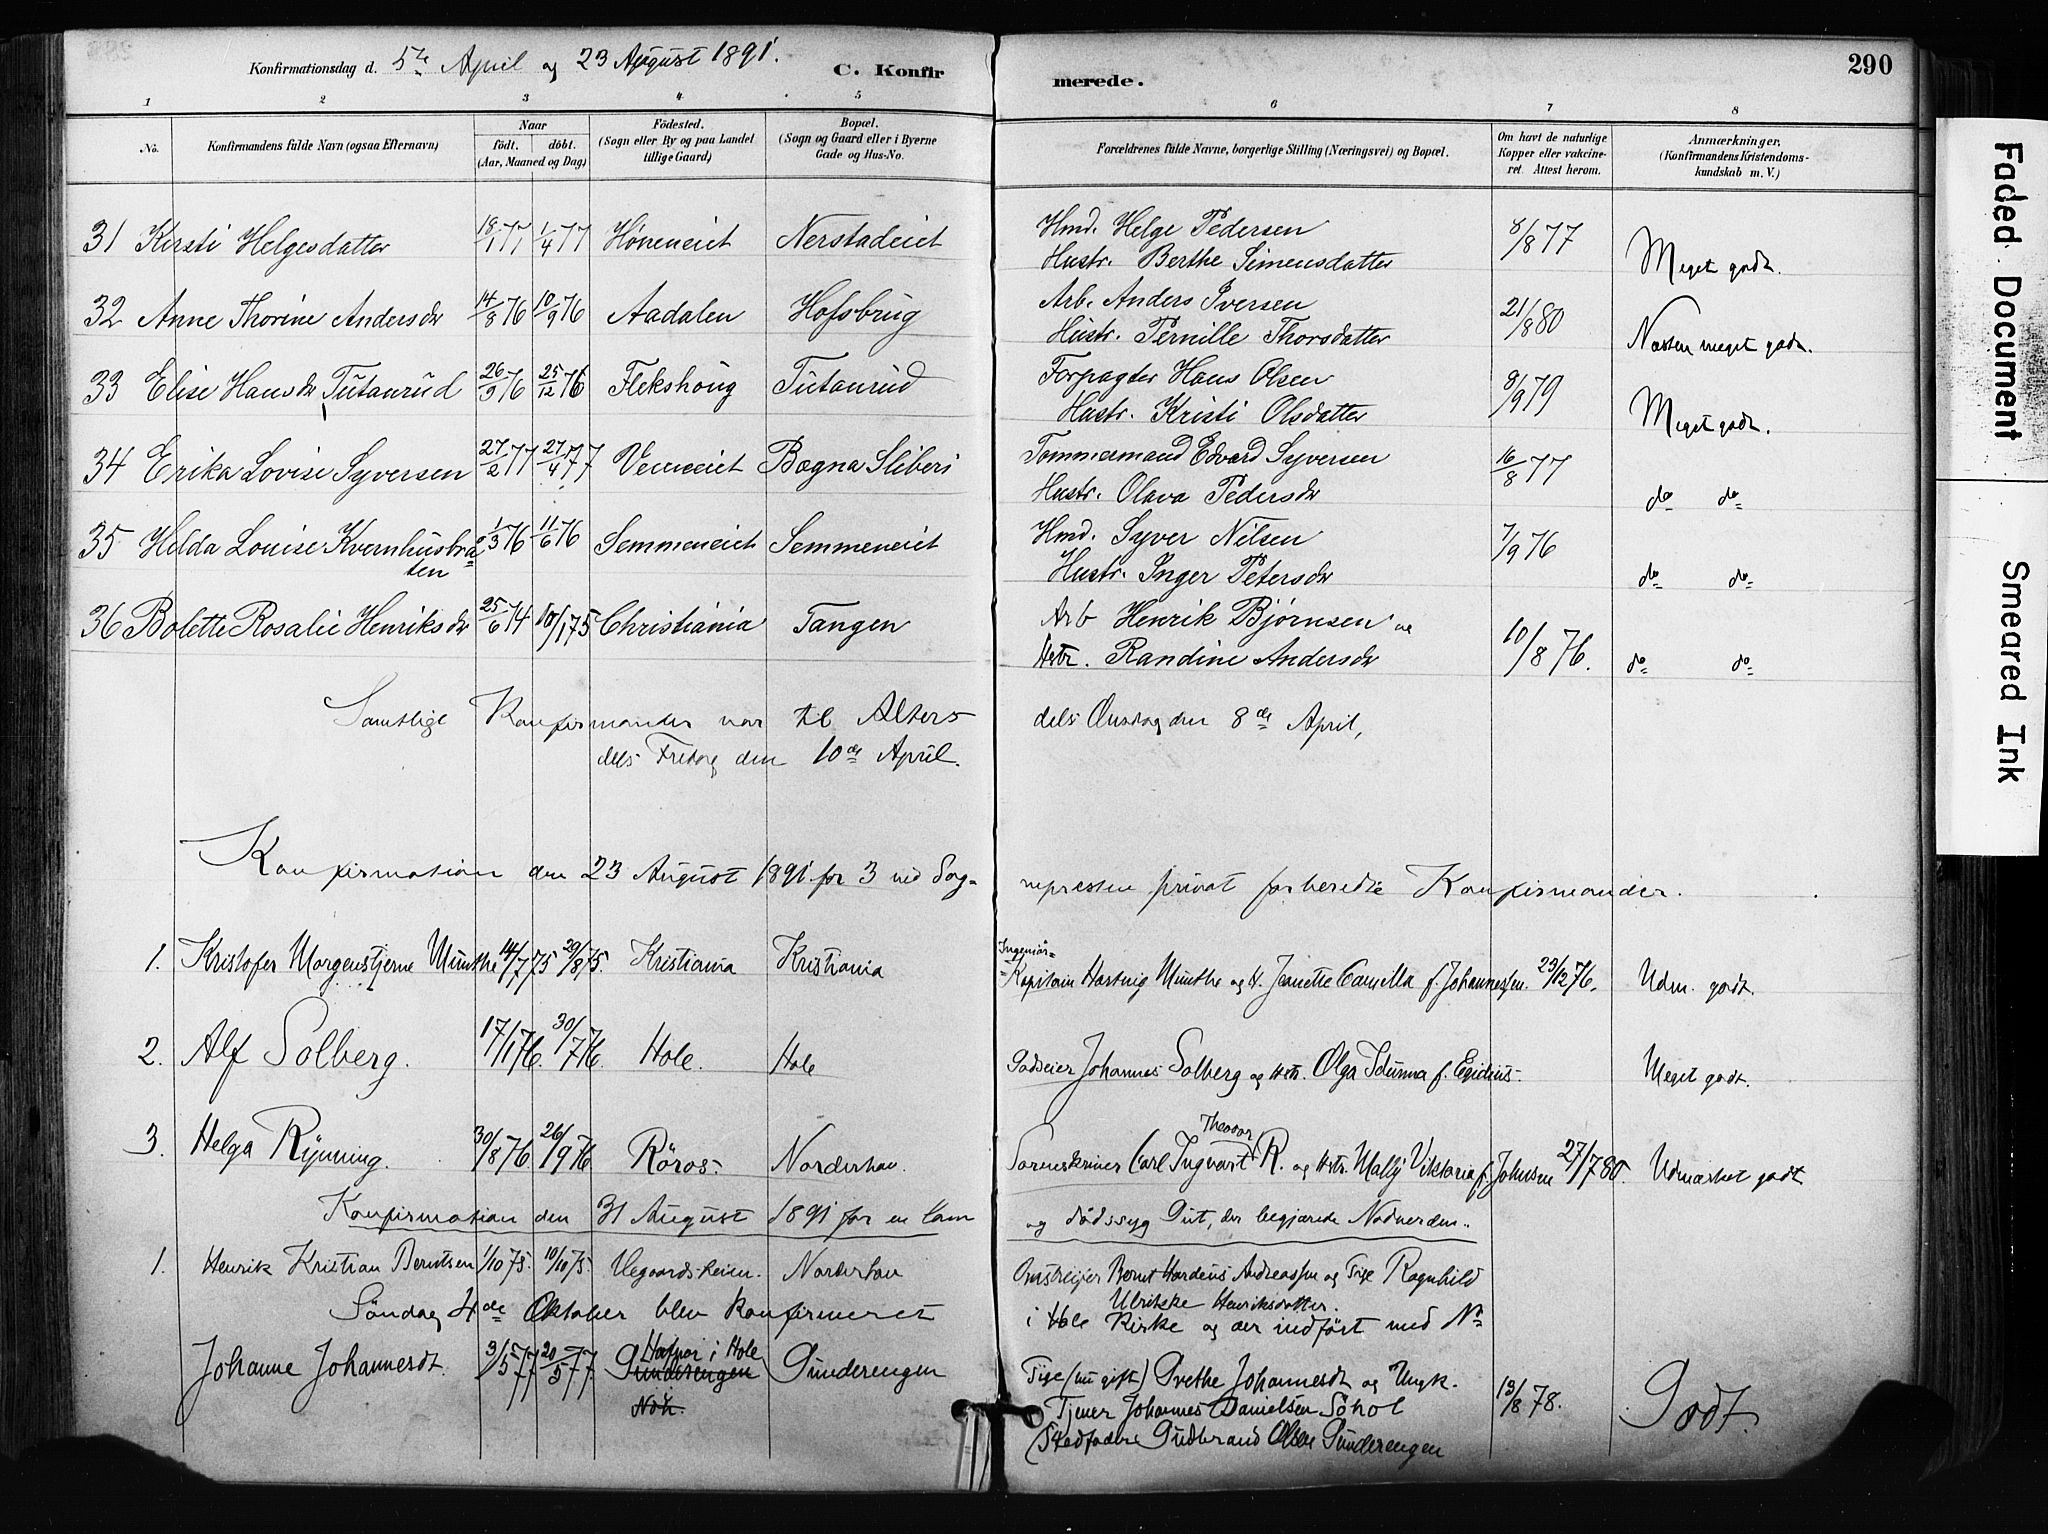 290
Konfirmationsdag d. 5te April og 23 August 1891. C. Konfirmerede.
1 2 3 4 5 6 7 8
No. Konfirmandens fulde Navn (ogsaa Efternavn) Naar født. døbt. (Aar, Maaned og Dag) Fødested. (Sogn eller By og paa Landet tillige Gaard) Bopæl. (Sogn og Gaard eller i Byerne Gade og Hus-No. Forældrenes fulde Navne, borgerlige Stilling (Næringsvei) og Bopæl. Om havt de naturlige Kopper eller vakcineret. Attest herom. Anmærkninger, (Konfirmandens Kristendomskundskab m. V.)
31 Kirsti Helgesdatter 18/1 77 1/4 77 Høneneiet Nerstadeiet Hmd. Helge Pedersen 8/8 77
Hustr. Berthe Simensdatter Meget godt.
32 Anne Thorine Andersdr 14/8 76 10/9 76 Aadalen Hofsbrug Arb. Anders Iversen 21/8 80
Hustr. Pernille Thorsdatter Næsten meget godt.
33 Elise Hansdr Tutanrud 26/9 76 25/12 76 Flekshoug Tutanrud Forpagter Hans Olsen 8/9 79
Hustr. Kristi Olsdatter Meget godt.
34 Erika Lovise Syversen 27/2 77 27/4 77 Venneeiet Bægna Sliberi Tømmermand Edvard Syversen 16/8 77
Hustr. Olava Pedersdr do do
35 Helda Louise Kvernhusbra= 1/3 76 11/6 76 Semmeneiet Semmeneiet Hmd. Syver Nilsen 7/9 76
ten Hustr. Inger Petersdr do do
36 Bolette Rosalie Henriksdr 25/6 74 10/1 75 Christiania Tangen Arb Henrik Bjørnsen og 10/8 76.
Hstr. Randine Andersdr do do
Samtlige Konfirmander var til Alters dels Onsdag den 8de April,
dels Fredag den 10de April.
Konfirmation den 23 August 1891 for 3 ved Sog= nepresten privat forberedte Konfirmander.
1. Kristofer Morgenstjerne Munthe 14/7 75 29/8 75. Kristiania Kristiania Ingeniør=
Kapitain Hartvig Munthe og H. Jeanette Camilla f. Johannessen. 23/12 76. Udm. godt.
2. Alf Solberg. 17/1 76. 30/7 76. Hole. Hole Godseier Johannes Solberg og Hstr. Olga Idunna f. Egidius. Meget godt.
3. Helga Rynning. 30/8 76. 26/9 76 Røros Norderhov. Sorenskriver Carl Ingvart Theodor R. og Hstr. Mally Viktoria f. Johnsen 27/7 80. Udmærket godt
Konfirmation den 31 August 1891 for en lam og dødssyg Gut, der begjærede Nadverden.
1. Henrik Kristian Berntsen 1/10 75. 10/10 75. Vegaardsheien. Norderhov Omstreifer Bernt Andreassen og Pige Ragnhild
Ulrikke Henriksdatter.
Søndag 4de Oktober blev konfirmeret i Hole Kirke og der indført med No
Johanne Johannesdt. 3/5 77 20/5 77. Hafnor i Hole Gunderengen Gunderengen Pige (nu gift) Grethe Johannesdt og Ungk. 13/8 78. Godt.
Noh. Tjener Johannes Danielsen Søhol
(Stedfader Gudbrand Olsen Gunderengen
Faded Document
Smeared Ink